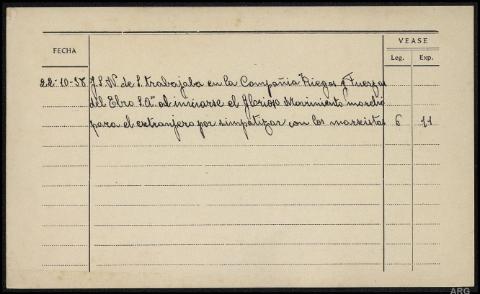 VEASE
FECHA
Leg. Exp.
22-10-38 J.S.N. de S. trabajaba en la Compañia Riegos y Fuerzas
del Ebro S.A. al iniciarse el Glorioso Movimiento marchó
para el extranjero por simpatizar con los marxistas 6 11
ARG